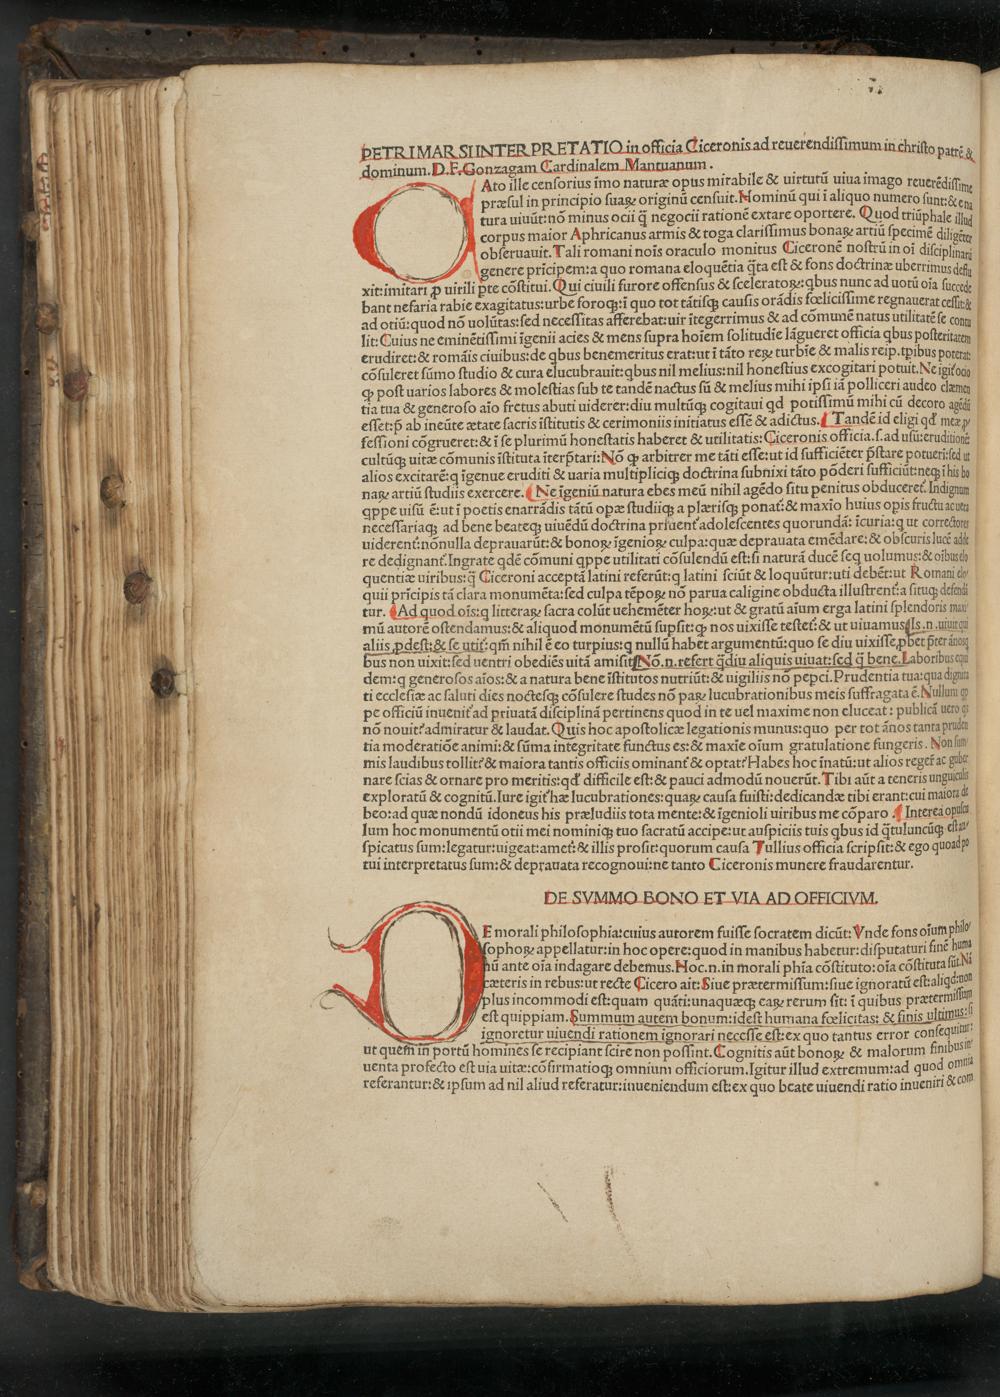 PETRI MARSI INTERPRETATIO in officia Ciceronis ad reuerendissimum in christo patrē &
dominum.D.F.Gonzagam Cardinalem Mantuanum.
CAto ille censorius īmo naturæ opus mirabile & uirtutū uiua imago reuerēdissime
præsul in principio suaꝝ originū censuit.Nominū qui ī aliquo numero sunt:& e na
tura uiuūt:nō minus ocii q̄ negocii rationē extare oportere. Quod triūphale illud
corpus maior Aphricanus armis & toga clarissimus bonaꝝ artiū specimē diligēter
obseruauit.Tali romani nois oraculo monitus Ciceronē nostrū in oī disciplinarū
genere prīcipem:a quo romana eloquētia q̄ta est & fons doctrinæ uberrimus deflu
xit:imitari ꝓ uirili ꝑte cōstitui.Qui ciuili furore offensus & sceleratoꝝ:qbus nunc ad uotū oīa succede
bant nefaria rabie exagitatus:urbe foroqꝫ:ī quo tot tātisqꝫ causis orādis fœlicissime regnauerat cessit:&
ad otiū:quod nō uolūtas:sed necessitas afferebat:uir ītegerrimus & ad cōmunē natus utilitatē se contu
lit:Cuius ne eminētissimi īgenii acies & mens supra hoīem solitudīe lāgueret officia qbus posteritatem
erudiret:& romāis ciuibus:de qbus benemeritus erat:ut ī tāto reꝝ turbīe & malis reip.tpibus poterat:
cōsuleret sūmo studio & cura elucubrauit:qbus nil melius:nil honestius excogitari potuit.Ne igit᷑ ocio
qꝫ post uarios labores & molestias sub te tandē nactus sū & melius mihi ipsi iā polliceri audeo clæmen
tia tua & generoso aīo fretus abuti uiderer:diu multūqꝫ cogitaui qd potissimū mihi cū decoro agēdū
esset:p̄ ab ineūte ætate sacris īstitutis & cerimoniis initiatus essē & adictus. Tandē id eligi qd' meæ ꝓ
fessioni cōgrueret:& ī se plurimū honestatis haberet & utilitatis:Ciceronis officia.s.ad usū:eruditionē
cultūqꝫ uitæ cōmunis īstituta īterp̄tari:Nō qꝫ arbitrer me tāti esse:ut id sufficiēter p̄stare potueri:sed ut
alios excitarē:q īgenue eruditi & uaria multipliciqꝫ doctrina subnixi tāto pōderi sufficiūt:neqꝫ ī his bo
naꝝ artiū studiis exercere. Ne īgeniū natura ebes meū nihil agēdo situ penitus obduceret᷑.Indignum
qppe uisū ē:ut ī poetis enarrādis tātū opæ studiiqꝫ a plærisqꝫ ponat᷑:& maxio huius opis fructu ac uera
necessariaqꝫ ad bene beateqꝫ uiuēdū doctrina priuent᷑ adolescentes quorundā: īcuria:q ut correctores
uiderent᷑:nōnulla deprauarūt:& bonoꝝ īgenioꝝ culpa:quæ deprauata emēdare:& obscuris lucē adde
re dedignant᷑.Ingrate qdē cōmuni qppe utilitati cōsulendū est:si naturā ducē seq uolumus:& oībus elo
quentiæ uiribus:q̄ Ciceroni acceptā latini referūt:q latini sciūt & loquūtur:uti debēt:ut Romani elo
quii prīcipis tā clara monumēta:sed culpa tēpoꝝ nō parua caligine obducta illustrent᷑:a situqꝫ defendā
tur. Ad quod oīs:q litteraꝝ sacra colūt uehemēter hoꝝ:ut & gratū aīum erga latini splendoris maxi
mū autorē ostendamus:& aliquod monumētū supsit:qꝫ nos uixisse testet᷑:& ut uiuamus.Is.n.uiuit qui
aliis ꝓdest:& se utit᷑:qm̄ nihil ē eo turpius:q nullū habet argumentū:quo se diu uixisse ꝓbet p̄ter ānosq
bus non uixit:sed uentri obediēs uitā amisit.Nō.n.refert q̄diu aliquis uiuat:sed q̄ bene.Laboribus equi
dem:q generosos aīos:& a natura bene īstitutos nutriūt:& uigiliis nō pepci.Prudentia tua:qua dignata
ti ecclesiæ ac saluti dies noctesqꝫ cōsulere studes nō paꝝ lucubrationibus meis suffragata ē.Nullum qp
pe officiū inuenit᷑ ad priuatā disciplinā pertinens quod in te uel maxime non eluceat: publicā uero qs
nō nouit?admiratur & laudat. Quis hoc apostolicæ legationis munus:quo per tot ānos tanta pruden
tia moderatiōe animi:& sūma integritate functus es:& maxīe oīum gratulatione fungeris. Non sum
mis laudibus tollit?& maiora tantis officiis ominant᷑ & optat?Habes hoc īnatū:ut alios reger̄ ac guber
nare scias & ornare pro meritis:qd' difficile est:& pauci admodū nouerūt.Tibi aūt a teneris unguiculis
exploratū & cognitū.Iure igit᷑ hæ lucubrationes:quaꝝ causa fuisti:dedicandæ tibi erant:cui maiora de
beo:ad quæ nondū idoneus his præludiis tota mente:& īgenioli uiribus me cōparo. Interea opuscu
lum hoc monumentū otii mei nominiqꝫ tuo sacratū accipe:ut auspiciis tuis qbus id q̄tuluncūqꝫ est au
spicatus sum:legatur:uigeat:amet᷑:& illis prosit:quorum causa Tullius officia scripsit:& ego quoad po
tui interpretatus sum:& deprauata recognoui:ne tanto Ciceronis munere fraudarentur.
DE SVMMO BONO ET VIA AD OFFICIVM.
DE morali philosophia:cuius autorem fuisse socratem dicūt:Vnde fons oīum philo
sophoꝝ appellatur:in hoc opere:quod in manibus habetur:disputaturi finē huma
nū ante oīa indagare debemus.Hoc.n.in morali phīa cōstituto:oīa cōstituta sūt.Nā
cæteris in rebus:ut recte Cicero ait:Siue prætermissum:siue ignoratū est:aliqd:non
plus incommodi est:quam quāti:unaquæqꝫ eaꝝ rerum sit: ī quibus prætermissum
est quippiam.Summum autem bonum:idest humana fœlicitas: & finis ultimus:si
ignoretur uiuendi rationem ignorari necesse est:ex quo tantus error consequitur:
ut quem in portū homines se recipiant scire non possint.Cognitis aūt bonoꝝ & malorum finibus in
uenta profecto est uia uitæ:cōfirmatioqꝫ omnium officiorum.Igitur illud extremum:ad quod omnia
referantur:& ipsum ad nil aliud referatur:inueniendum est:ex quo beate uiuendi ratio inueniri & com